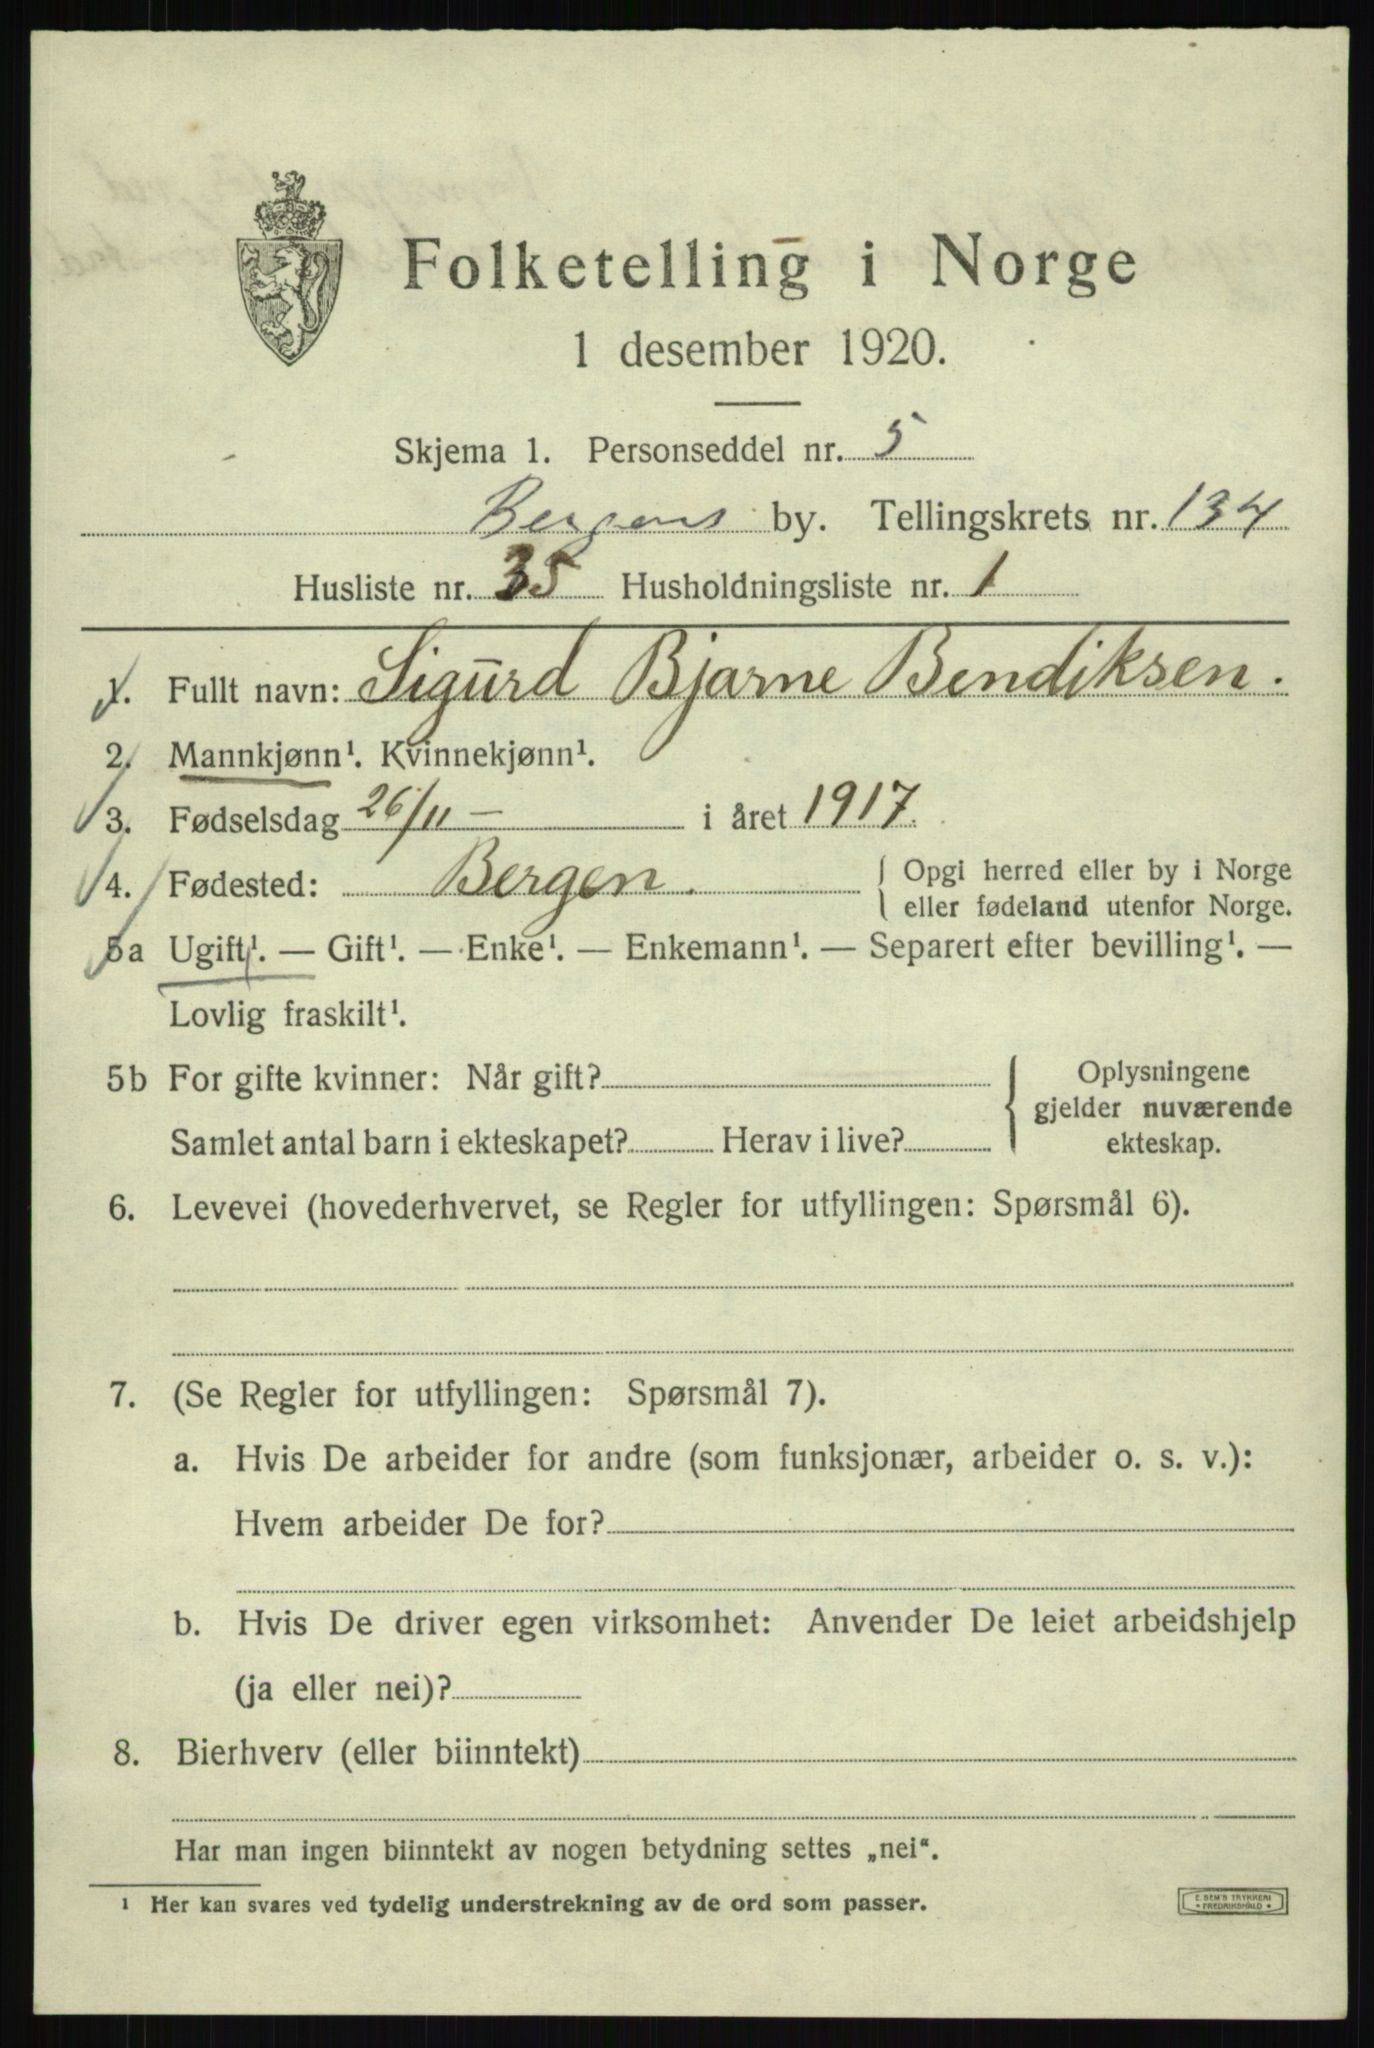 Folketelling i Norge
1 desember 1920.
Skjema 1. Personseddel nr. 5
Bergens by. Tellingskrets nr. 134
Husliste nr. 35 Husholdningsliste nr. 1
1. Fullt navn: Sigurd Bjarne Bendiksen.
2. Mannkjønn¹. Kvinnekjønn¹.
3. Fødselsdag 26/11 - i året 1917.
4. Fødested: Bergen. { Opgi herred eller by i Norge
eller fødeland utenfor Norge.
5a Ugift¹. — Gift¹. — Enke¹. — Enkemann¹. — Separert efter bevilling¹. —
Lovlig fraskilt¹.
5b For gifte kvinner: Når gift? { Oplysningene
gjelder nuværende
Samlet antal barn i ekteskapet? Herav i live? ekteskap.
6. Levevei (hovederhvervet, se Regler for utfyllingen: Spørsmål 6).
7. (Se Regler for utfyllingen: Spørsmål 7).
a. Hvis De arbeider for andre (som funksjonær, arbeider o. s. v.):
Hvem arbeider De for?
b. Hvis De driver egen virksomhet: Anvender De leiet arbeidshjelp
(ja eller nei)?
8. Bierhverv (eller biinntekt)
Har man ingen biinntekt av nogen betydning settes „nei“.
¹ Her kan svares ved tydelig understrekning av de ord som passer.
E. SEM'S TRYKKERI
FREDRIKSHALD